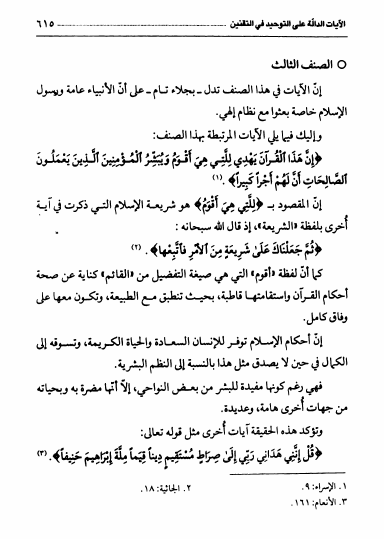 الآيات الدالّة على التوحيد في التقنين ٦١٥
○ الصنف الثالث
إنّ الآيات في هذا الصنف تدل ـ بجلاء تام ـ على أنّ الأنبياء عامة ورسول
الإسلام خاصة بعثوا مع نظام إلهي.
وإليك فيما يلي الآيات المرتبطة بهذا الصنف:
﴿إِنَّ هَذَا الْقُرآنَ يَهْدِي لِلَّتِي هِيَ أَقْوَمُ وَيُبَشِّرُ الْمُؤْمِنِينَ الَّذِينَ يَعْمَلُونَ
الصَّالِحَاتِ أَنَّ لَهُمْ أَجْراً كَبِيراً﴾. (١)
إنّ المقصود بـ ﴿لِلَّتِي هِيَ أَقْوَمُ﴾ هو شريعة الإسلام التي ذكرت في آية
أُخرى بلفظة «الشريعة»، إذ قال الله سبحانه:
﴿ثُمَّ جَعَلْنَاكَ عَلَىٰ شَرِيعَةٍ مِنَ الأَمْرِ فَاتَّبِعْهَا﴾. (٢)
كما أنّ لفظة «أقوم» التي هي صيغة التفضيل من «القائم» كناية عن صحة
أحكام القرآن واستقامتها قاطبة، بحيث تنطبق مع الطبيعة، وتكون معها على
وفاق كامل.
إنّ أحكام الإسلام توفر للإنسان السعادة والحياة الكريمة، وتسوقه إلى
الكمال في حين لا يصدق مثل هذا بالنسبة إلى النظم البشرية.
فهي رغم كونها مفيدة للبشر من بعض النواحي، إلاّ أنّها مضرة به وبحياته
من جهات أُخرى هامة، وعديدة.
وتؤكد هذه الحقيقة آيات أُخرى مثل قوله تعالى:
﴿قُلْ إِنَّنِي هَدَانِي رَبِّي إِلَىٰ صِرَاطٍ مُسْتَقِيمٍ دِيناً قِيَماً مِلَّةَ إِبْرَاهِيمَ حَنِيفاً﴾. (٣)
١. الإسراء: ٩. ٢. الجاثية: ١٨.
٣. الأنعام: ١٦١.